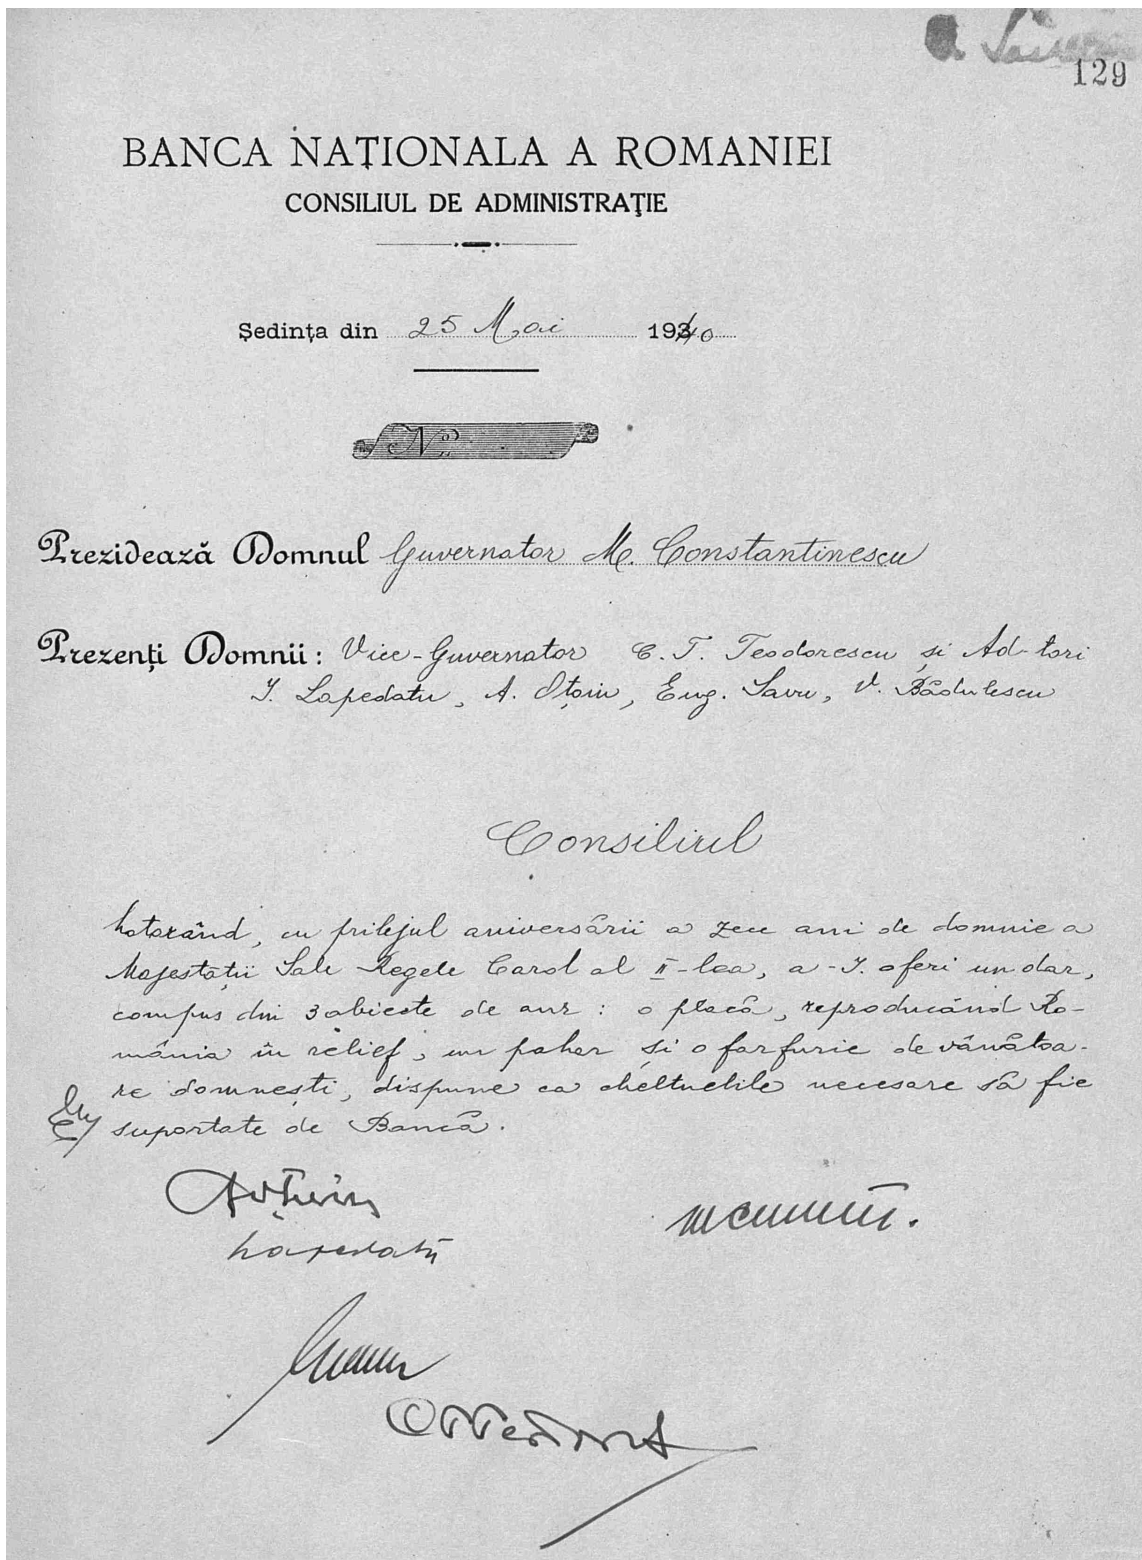 129
BANCA NAȚIONALA A ROMANIEI
CONSILIUL DE ADMINISTRAȚIE
Ședința din 25 Mai 1940
No
Prezidează Domnul Guvernator M. Constantinescu
Prezenți Domnii: Vice-Guvernator C. T. Teodorescu și Ad-tori
I. Lapedatu, A. Oțoiu, Eug. Savu, V. Bădulescu
Consiliul
hotarând, cu prilejul aniversării a zece ani de domnie a
Majestății Sale Regele Carol al II-lea, a-I. oferi un dar,
compus din 3 obiecte de aur: o placă, reproducând Ro-
mânia în relief, un pahar și o farfurie de vânătoa-
re domnești, dispune ca cheltuelile necesare să fie
suportate de Bancă.
Lapedatu